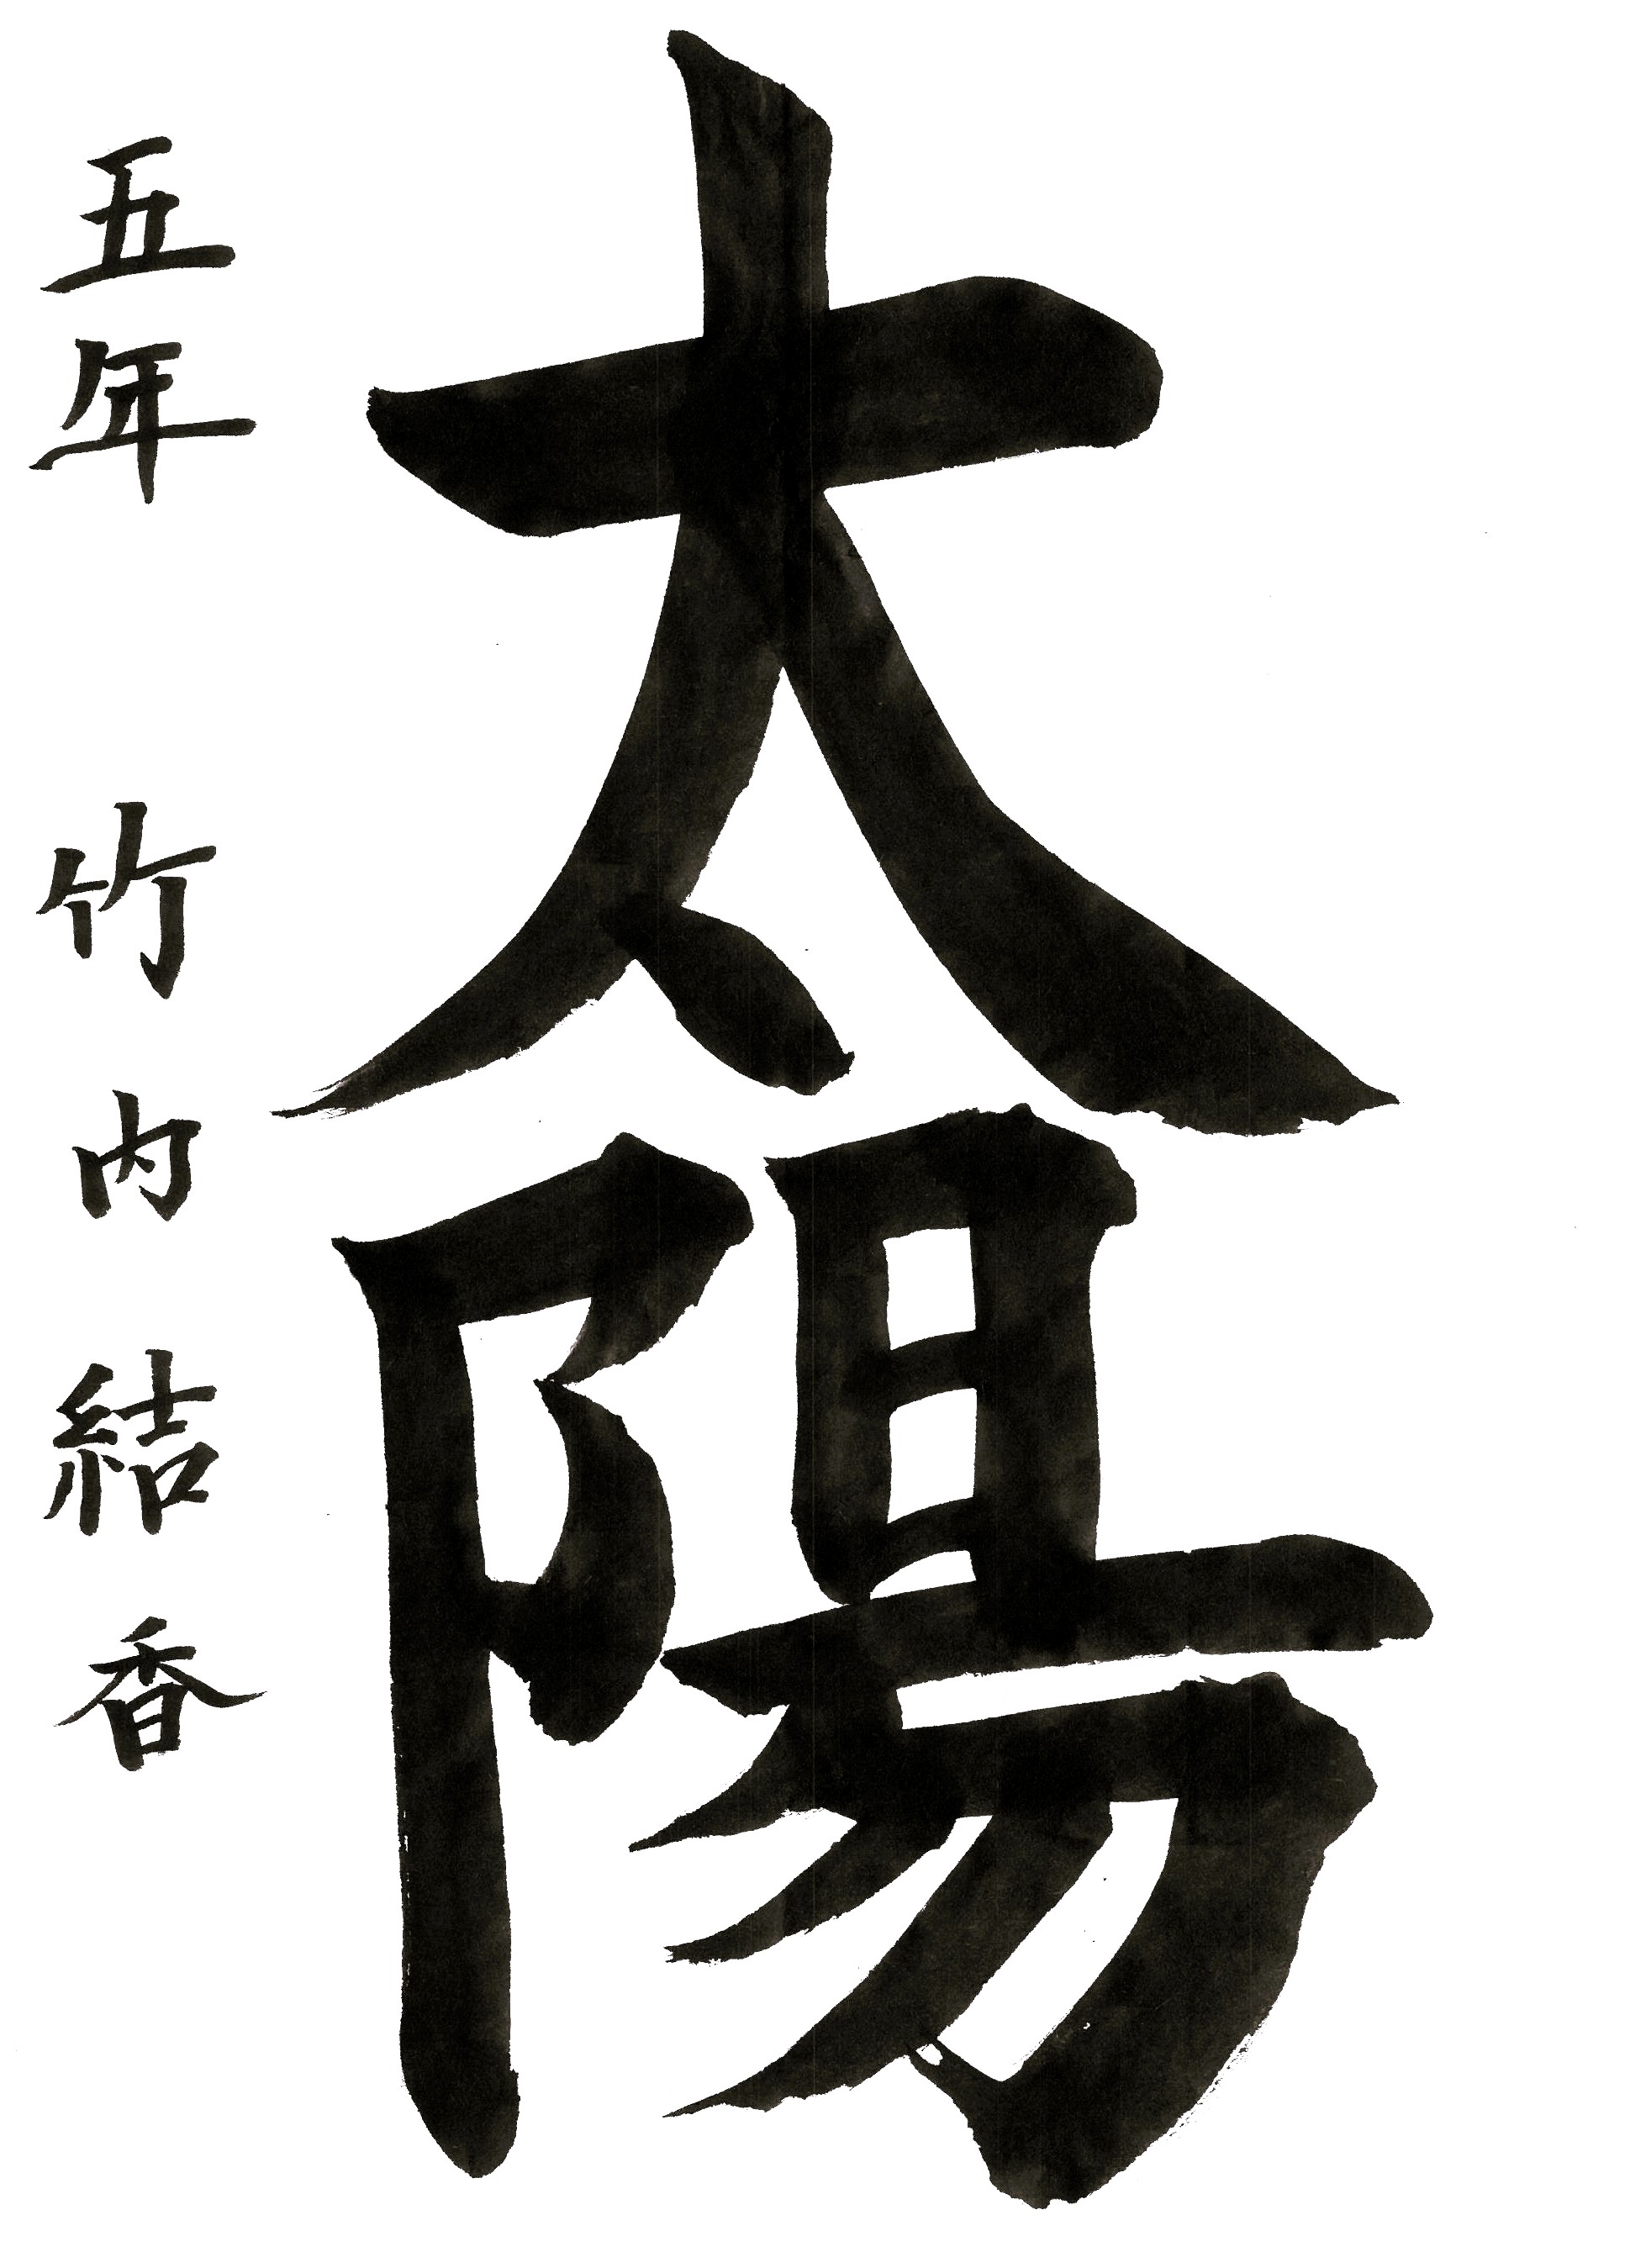 太陽
五年 竹内結香